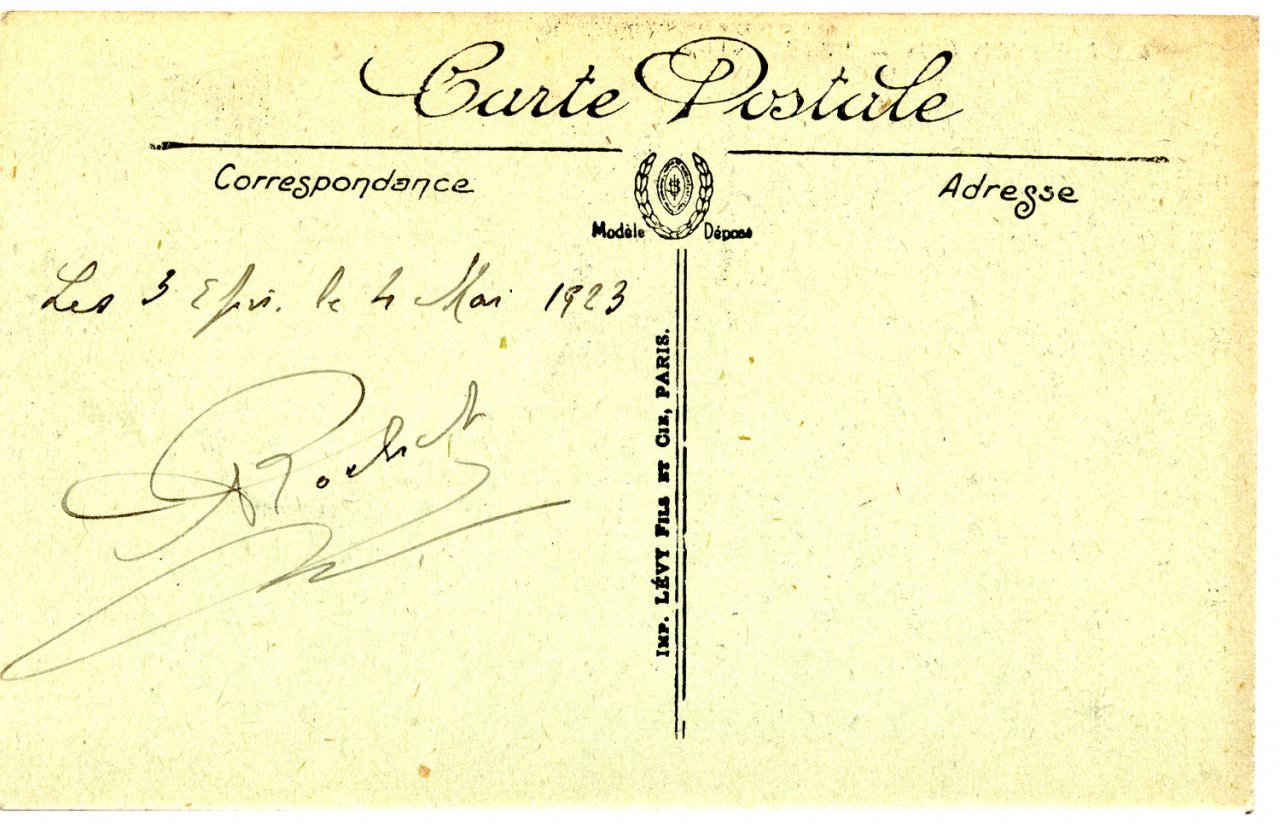 Carte Postale
Correspondance
Adresse
Modèle Déposé
Les 3 Epis. le 4 Mai 1923
IMP. LÉVY FILS ET CIE, PARIS.